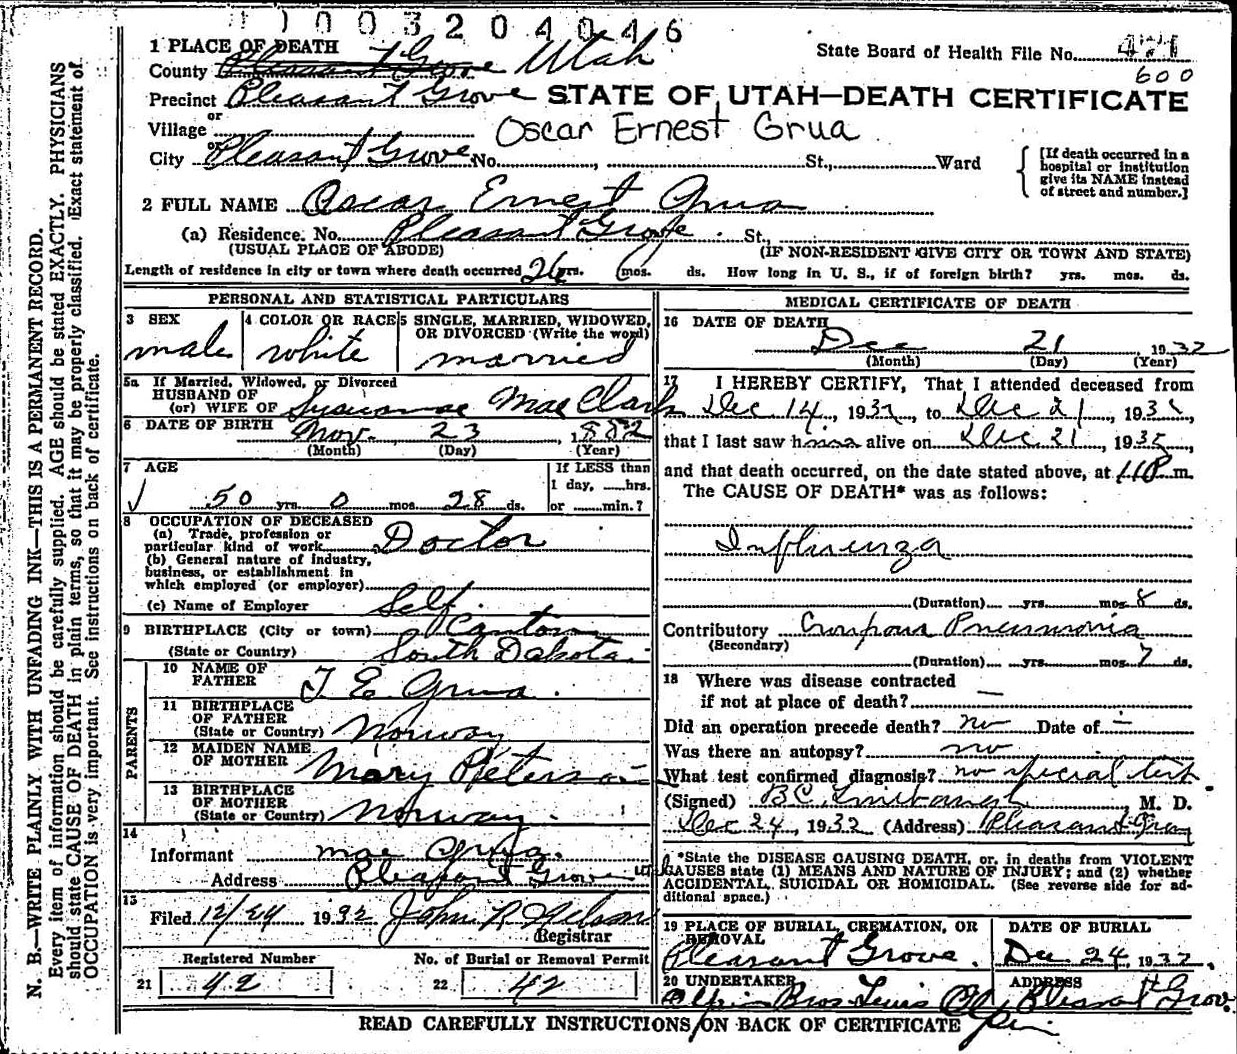 003204046
1 PLACE OF DEATH
County Pleasant Grove Utah
State Board of Health File No. 471
600
Precinct Pleasant Grove STATE OF UTAH—DEATH CERTIFICATE
or
Village
Oscar Ernest Grua
or
City Pleasant Grove No. , St., Ward
[If death occurred in a hospital or institution give its NAME instead of street and number.]
2 FULL NAME Oscar Ernest Grua
(a) Residence. No. Pleasant Grove. St.,
(USUAL PLACE OF ABODE) (IF NON-RESIDENT GIVE CITY OR TOWN AND STATE)
Length of residence in city or town where death occurred 26 yrs. mos. ds. How long in U. S., if of foreign birth? yrs. mos. ds.
PERSONAL AND STATISTICAL PARTICULARS
3 SEX
male
4 COLOR OR RACE
white
5 SINGLE, MARRIED, WIDOWED, OR DIVORCED (Write the word)
married
5a If Married, Widowed, or Divorced
HUSBAND OF
(or) WIFE OF Mae Clark
6 DATE OF BIRTH Nov. 23, 1882
(Month) (Day) (Year)
7 AGE
50 yrs. 0 mos. 28 ds.
If LESS than
1 day, hrs.
or min.?
8 OCCUPATION OF DECEASED
(a) Trade, profession or
particular kind of work Doctor
(b) General nature of industry,
business, or establishment in
which employed (or employer)
(c) Name of Employer Self.
9 BIRTHPLACE (City or town) Canton
(State or Country) South Dakota
PARENTS
10 NAME OF
FATHER T E Grua.
11 BIRTHPLACE
OF FATHER
(State or Country) Norway
12 MAIDEN NAME
OF MOTHER Mary Peterson
13 BIRTHPLACE
OF MOTHER
(State or Country) Norway.
14
Informant Mae Grua.
Address Pleasant Grove
15
Filed 12/24 1932 John R
Registrar
Registered Number
21 42
No. of Burial or Removal Permit
22 42
MEDICAL CERTIFICATE OF DEATH
16 DATE OF DEATH
Dec 21 1932
(Month) (Day) (Year)
17 I HEREBY CERTIFY, That I attended deceased from
Dec 14, 1932, to Dec 21, 1932
that I last saw him alive on Dec 21, 1932
and that death occurred, on the date stated above, at 11 P m.
The CAUSE OF DEATH* was as follows:
Influenza
(Duration) yrs. mos. 8 ds.
Contributory Croupous Pneumonia
(Secondary)
(Duration) yrs. mos. 7 ds.
18 Where was disease contracted
if not at place of death? —
Did an operation precede death? no Date of —
Was there an autopsy? no
What test confirmed diagnosis? no special test
(Signed) B C , M. D.
Dec 24, 1932 (Address) Pleasant Grove
*State the DISEASE CAUSING DEATH, or, in deaths from VIOLENT
CAUSES state (1) MEANS AND NATURE OF INJURY; and (2) whether
ACCIDENTAL, SUICIDAL OR HOMICIDAL. (See reverse side for ad-
ditional space.)
19 PLACE OF BURIAL, CREMATION, OR
REMOVAL
Pleasant Grove.
DATE OF BURIAL
Dec 24, 1932.
20 UNDERTAKER
Olpin Bros Lewis Olpin
ADDRESS
Pleasant Grove
READ CAREFULLY INSTRUCTIONS ON BACK OF CERTIFICATE
N. B.—WRITE PLAINLY WITH UNFADING INK—THIS IS A PERMANENT RECORD.
Every item of information should be carefully supplied. AGE should be stated EXACTLY. PHYSICIANS
should state CAUSE OF DEATH in plain terms, so that it may be properly classified. Exact statement of
OCCUPATION is very important. See instructions on back of certificate.